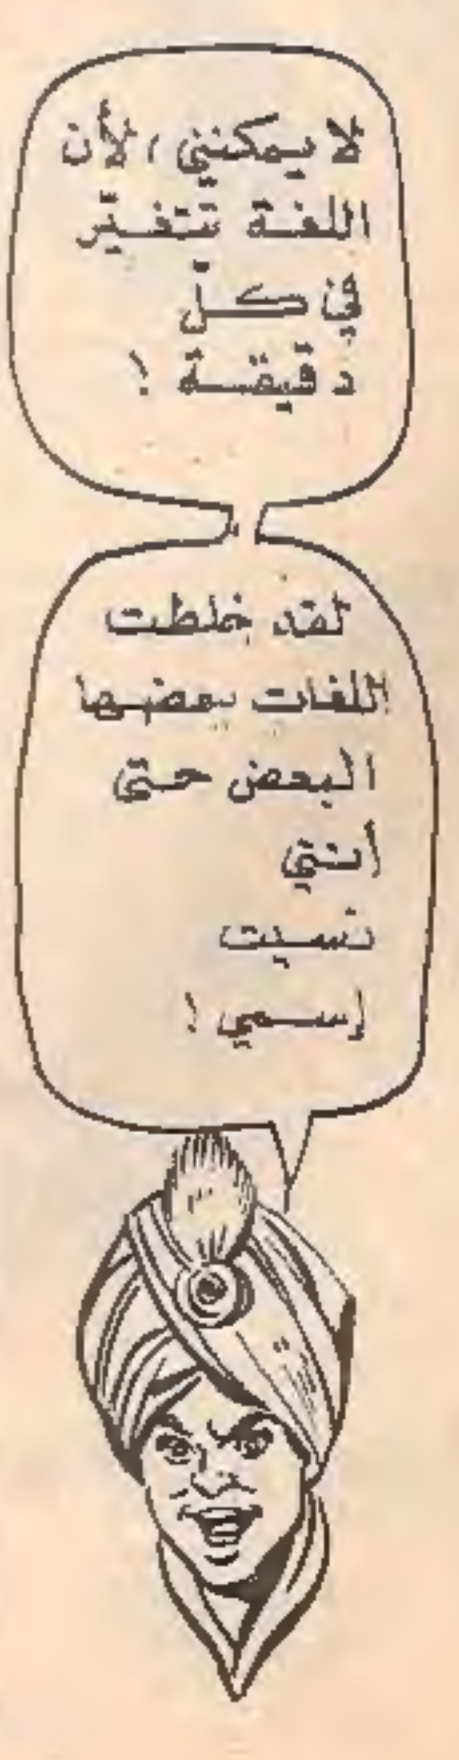 لا يمكنني ، لأن
اللغة تتغيّر
في كلّ
دقيقة !
لقد خلطت
اللغات بعضها
البعض حتى
أنني
نسيت
إسمي !